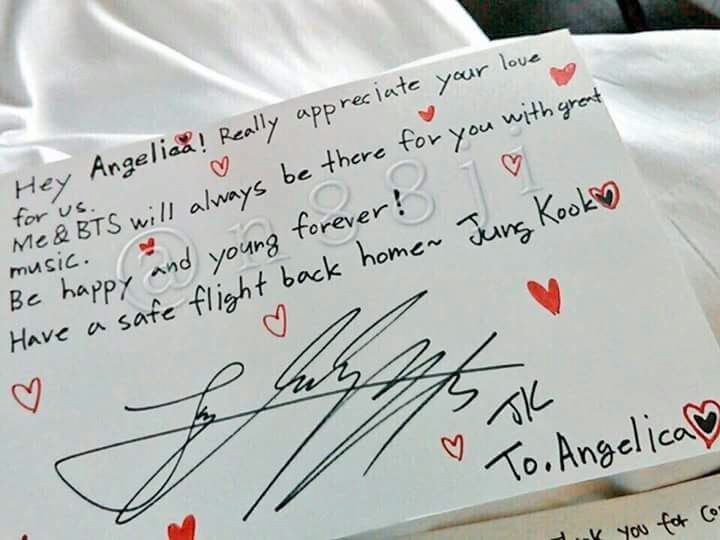 Hey Angelica! Really appreciate your love
for us.
Me & BTS will always be there for you with great
music.
Be happy and young forever!
Have a safe flight back home~ Jung Kook
JK
To. Angelica
@n88ji
you for co